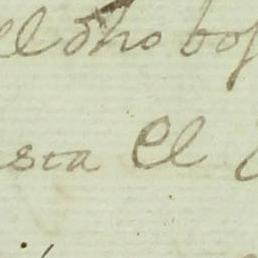 el dho bos
sta el